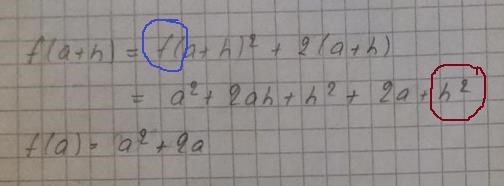 f(a+h) = f(a+h)² + 2(a+h)
= a² + 2ah + h² + 2a + h²
f(a) = a² + 2a